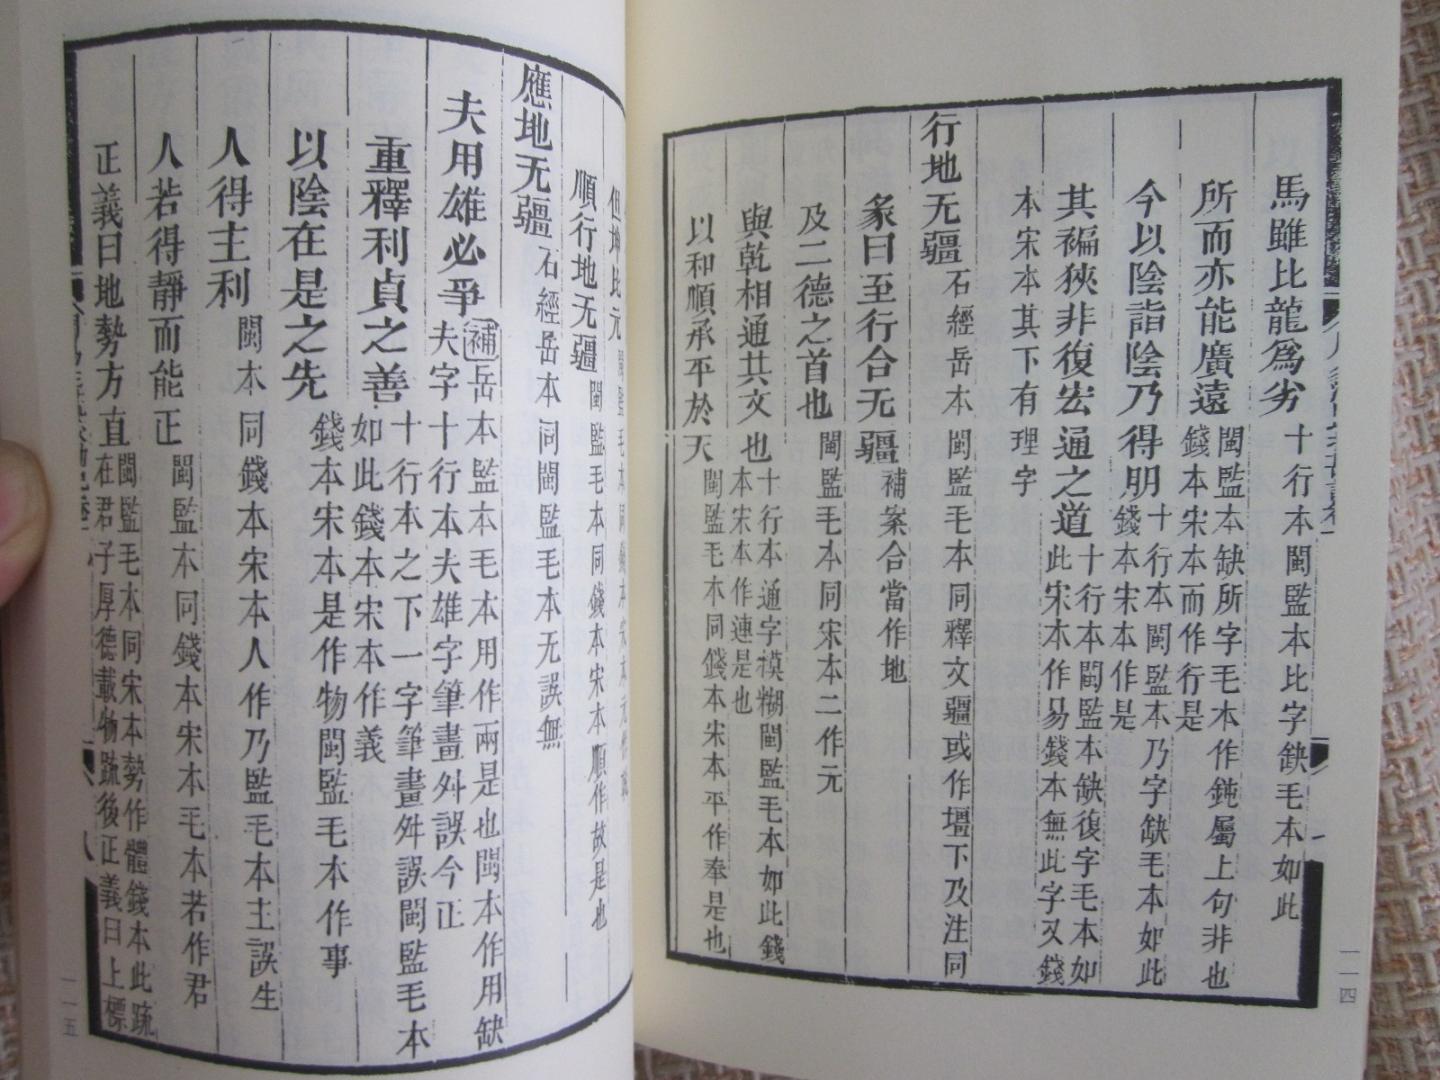 馬雖比龍爲劣十行本閩監本比字缺毛本如此
所而亦能廣遠閩監本缺所字毛本作鈍屬上句非也錢本宋本而作行是
今以陰詣陰乃得朋十行本閩監本乃字缺毛本如此錢本宋本作是
其褊狹非復宏通之道十行本閩監本缺復字毛本如此宋本作易錢本無此字又錢
本宋本其下有理字
行地无疆石經岳本閩監毛本同釋文疆或作壃下及注同
彖曰至行合无疆補案合當作地
及二德之首也閩監毛本同宋本二作元
與乾相通共文也十行本通字模糊閩監毛本如此錢本宋本作連是也
以和順承平於天閩監毛本同錢本宋本平作奉是也
但坤比元
順行地无疆閩監毛本同錢本宋本順作故是也
應地无疆石經岳本同閩監毛本无誤無
夫用雄必爭補岳本監本毛本用作兩是也閩本作用缺夫字十行本夫雄字筆畫舛誤今正
重釋利貞之善十行本之下一字筆畫舛誤閩監毛本如此錢本宋本作義
以陰在是之先錢本宋本是作物閩監毛本作事
人得主利閩本同錢本宋本人作乃監毛本主誤生
人若得靜而能正閩監本同錢本宋本毛本若作君
正義曰地勢方直閩監毛本同宋本勢作體錢本此疏在君子厚德載物疏後正義曰上標
一一四
一一五